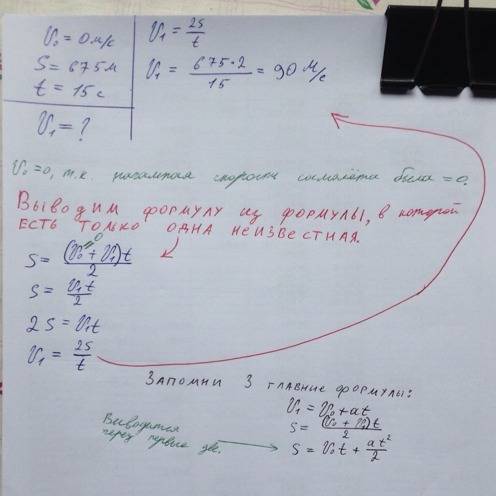 V₀ = 0 м/с
S = 675 м
t = 15 с
V₁ = ?
V₁ = 2S/t
V₁ = 675·2/15 = 90 м/с
V₀ = 0, т.к. начальная скорость самолёта была = 0.
Выводим формулу из формулы, в которой
есть только одна неизвестная.
0
S = (V₀ + V₁)t/2
S = V₁t/2
2S = V₁t
V₁ = 2S/t
Запомни 3 главные формулы:
V₁ = V₀ + at
S = (V₀ + V₁)t/2
S = V₀t + at²/2
Выводится
через первые две.